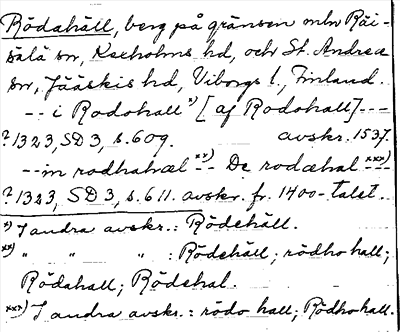 Rödahäll, berg på gränsen mln Räi-
sälä sn, Kexholms hd, och St. Andrea
sn, Jääskis hd, Viborgs l., Finland.
-- i Rodohall *) [af Rodohall] ---
? 1323, SD 3, s. 609. avskr. 1537.
-- in rodhahæl **) -- De rodæhal ***)
? 1323, SD 3, s. 611. avskr. fr. 1400-talet.
*) I andra avskr.: Rödehäll.
**) " " " : Rödehäll; rödho hall;
Rödahall; Rödehal.
***) I andra avskr.: rödo hall; Rödhohall.